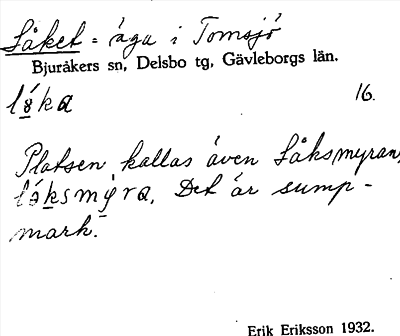 Låket = äga i Tomsjö
Bjuråkers sn, Delsbo tg, Gävleborgs län.
lǻka 16.
Platsen kallas även Låksmyran,
lǻksmyra. Det är sump-
mark.
Erik Eriksson 1932.